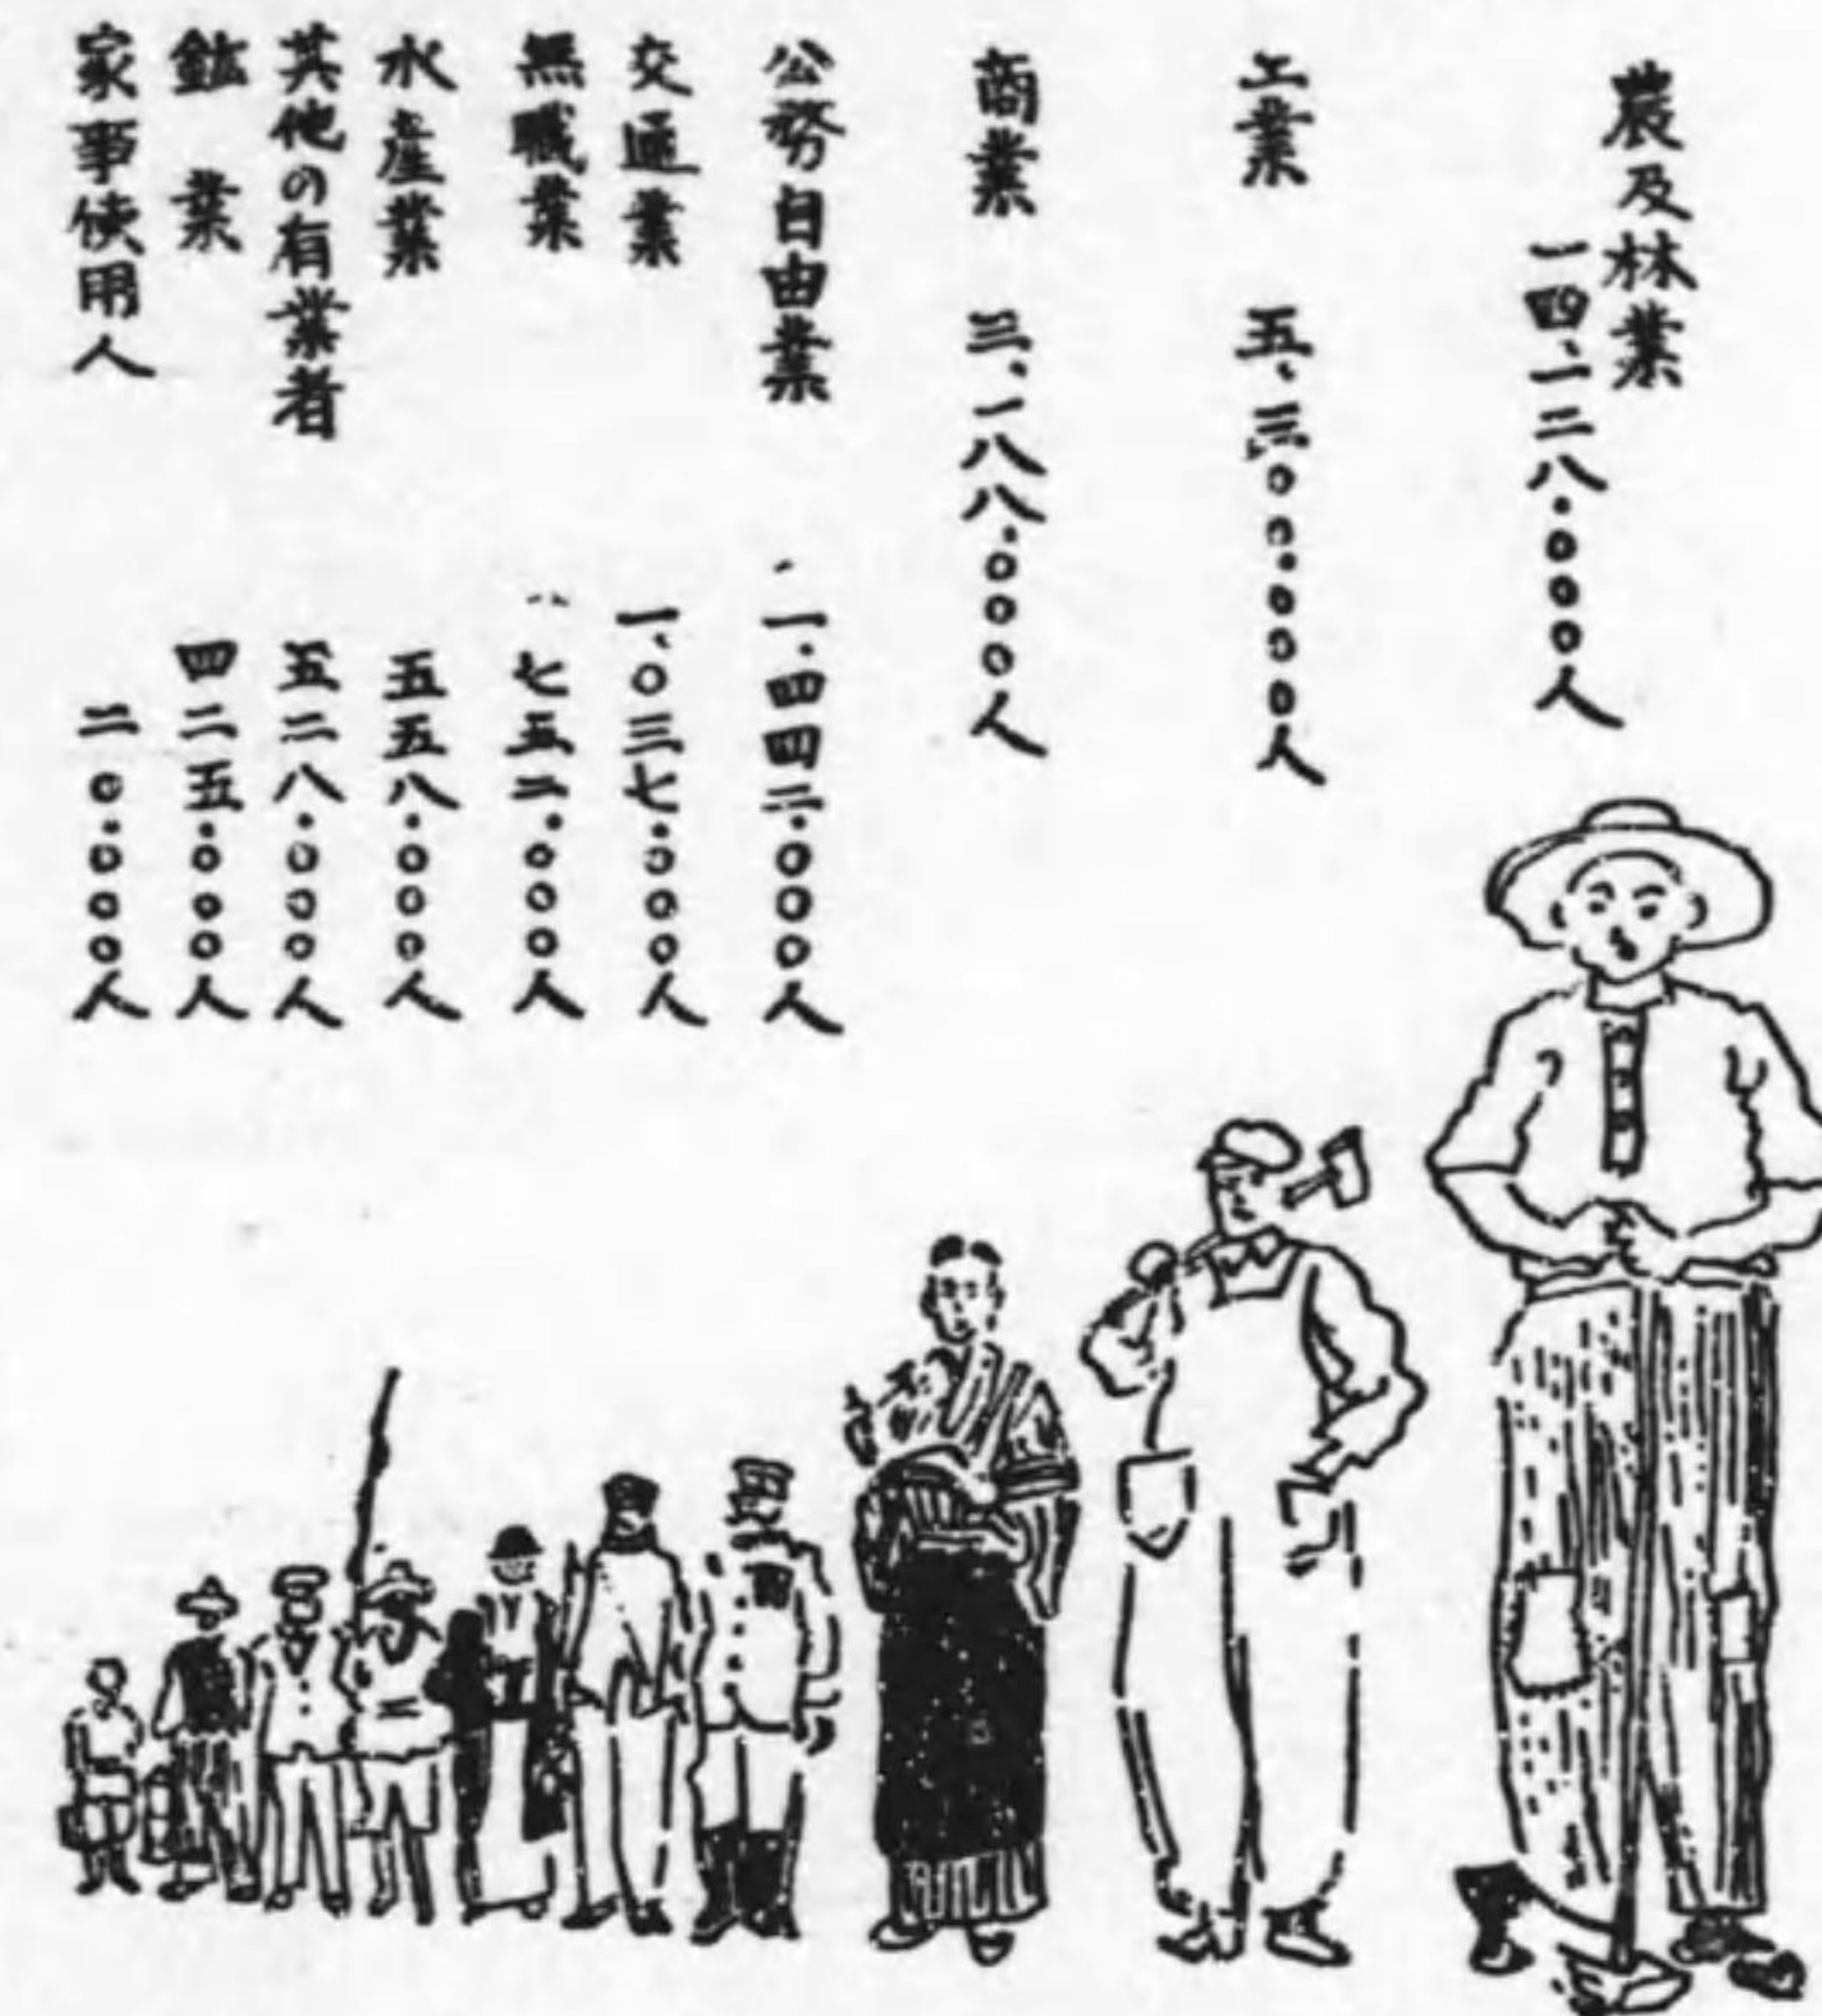 農及林業
一四、一二八.〇〇〇人
工業 五、三〇〇.〇〇〇人
商業 三、一八八.〇〇〇人
公務自由業 一.四四二.〇〇〇人
交通業 一、〇三七.〇〇〇人
無職業 七五二.〇〇〇人
水産業 五五八.〇〇〇人
其他の有業者 五二八.〇〇〇人
鉱業 四二五.〇〇〇人
家事使用人 二〇.〇〇〇人